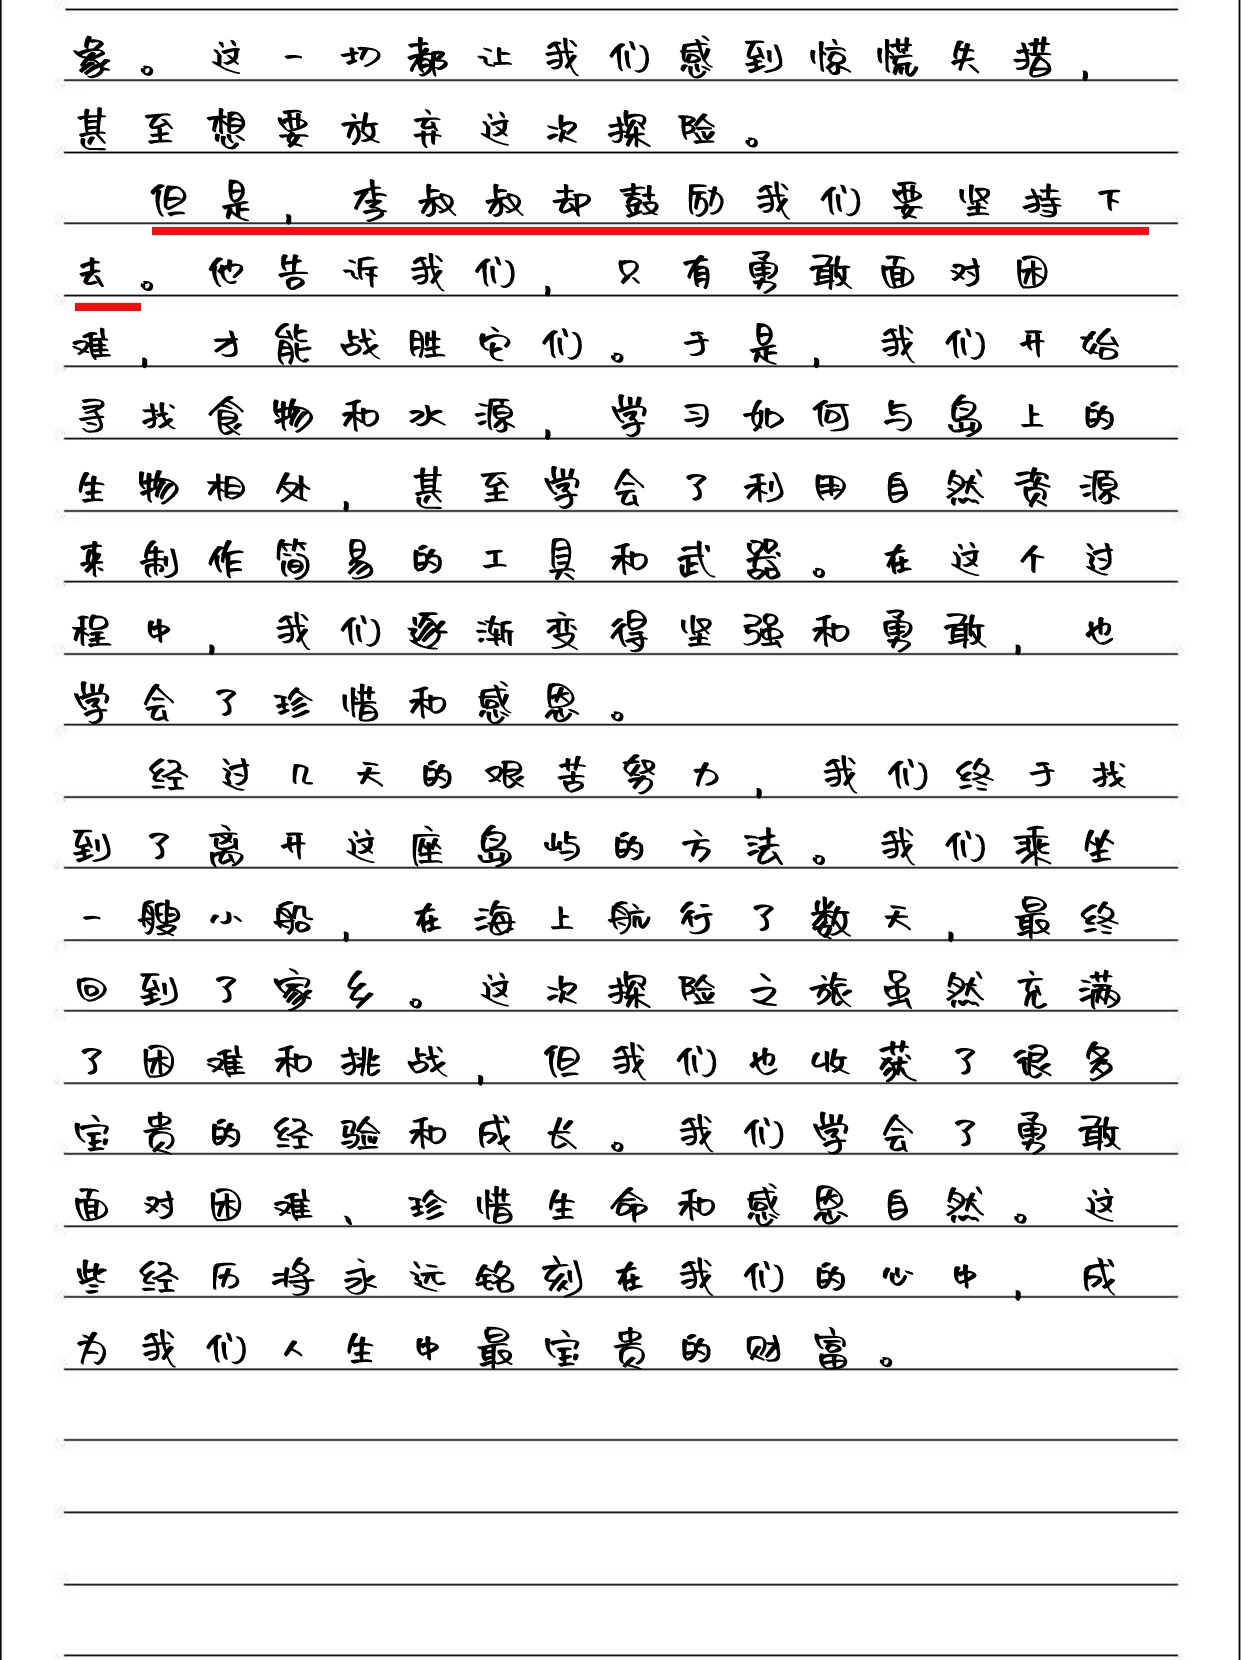 象。这一切都让我们感到惊慌失措，
甚至想要放弃这次探险。
但是，李叔叔却鼓励我们要坚持下
去。他告诉我们，只有勇敢面对困
难，才能战胜它们。于是，我们开始
寻找食物和水源，学习如何与岛上的
生物相处，甚至学会了利用自然资源
来制作简易的工具和武器。在这个过
程中，我们逐渐变得坚强和勇敢，也
学会了珍惜和感恩。
经过几天的艰苦努力，我们终于找
到了离开这座岛屿的方法。我们乘坐
一艘小船，在海上航行了数天，最终
回到了家乡。这次探险之旅虽然充满
了困难和挑战，但我们也收获了很多
宝贵的经验和成长。我们学会了勇敢
面对困难、珍惜生命和感恩自然。这
些经历将永远铭刻在我们的心中，成
为我们人生中最宝贵的财富。